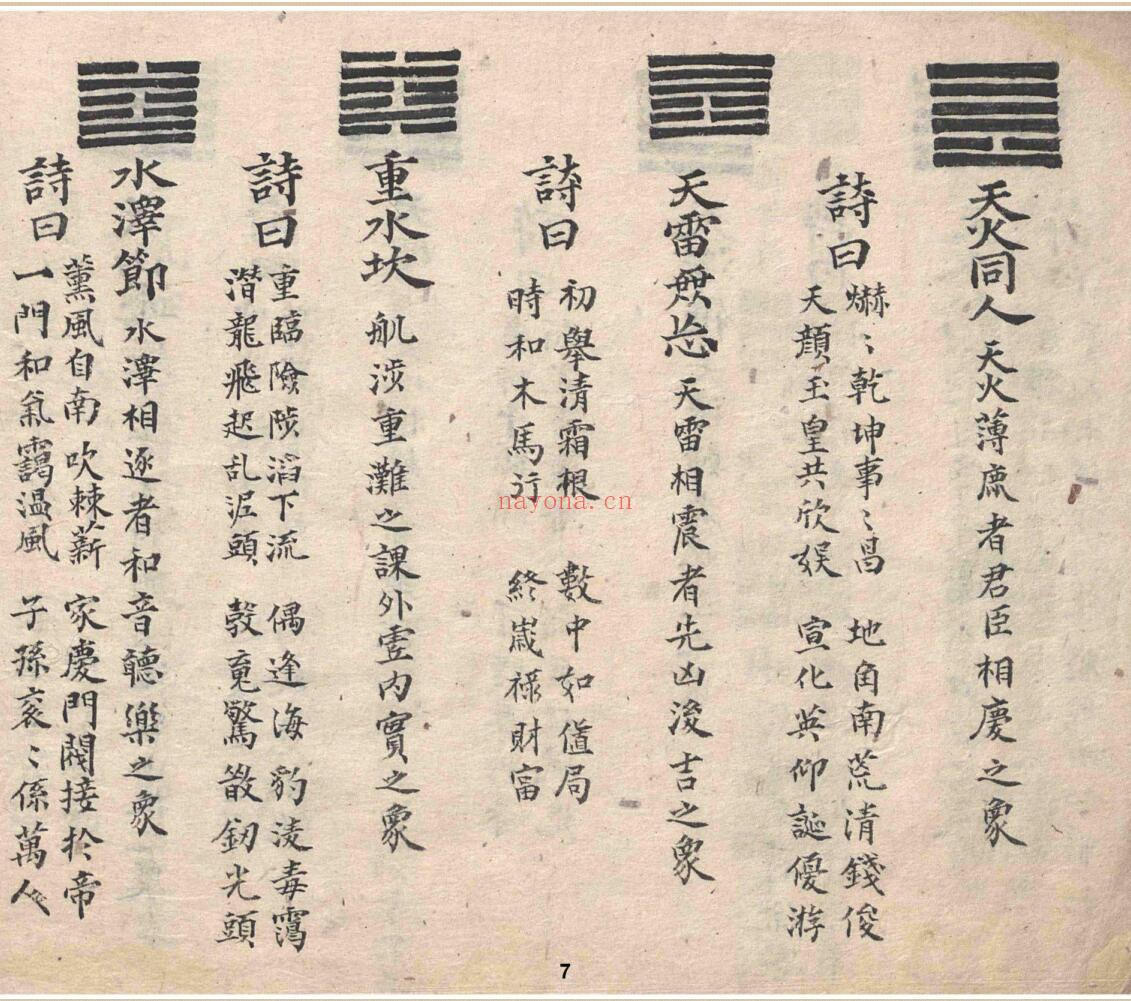 天火同人 天火薄鹿者君臣相慶之象
詩曰
爀〻乾坤事〻昌 地角南荒清錢俊
天顔玉皇共欣娱 宣化英仰誕優游
天雷无忘 天雷相震者先凶浚吉之象
詩曰
初舉清霜根 數中如値局
時和木馬行 終嵗禄財富
重水坎 舡涉重灘之課外虚内實之象
詩曰
重臨險陟滔下流 偶逢海豹淩毒霭
潜龍飛起乱泥頭 彀竟驚散釰光頭
水澤節 水澤相逐者和音聽樂之象
詩曰
薰風自南吹棘薪 家慶門閥接扵帝
一門和氣靄温風 子孫衮〻係萬人
nayona.cn
7